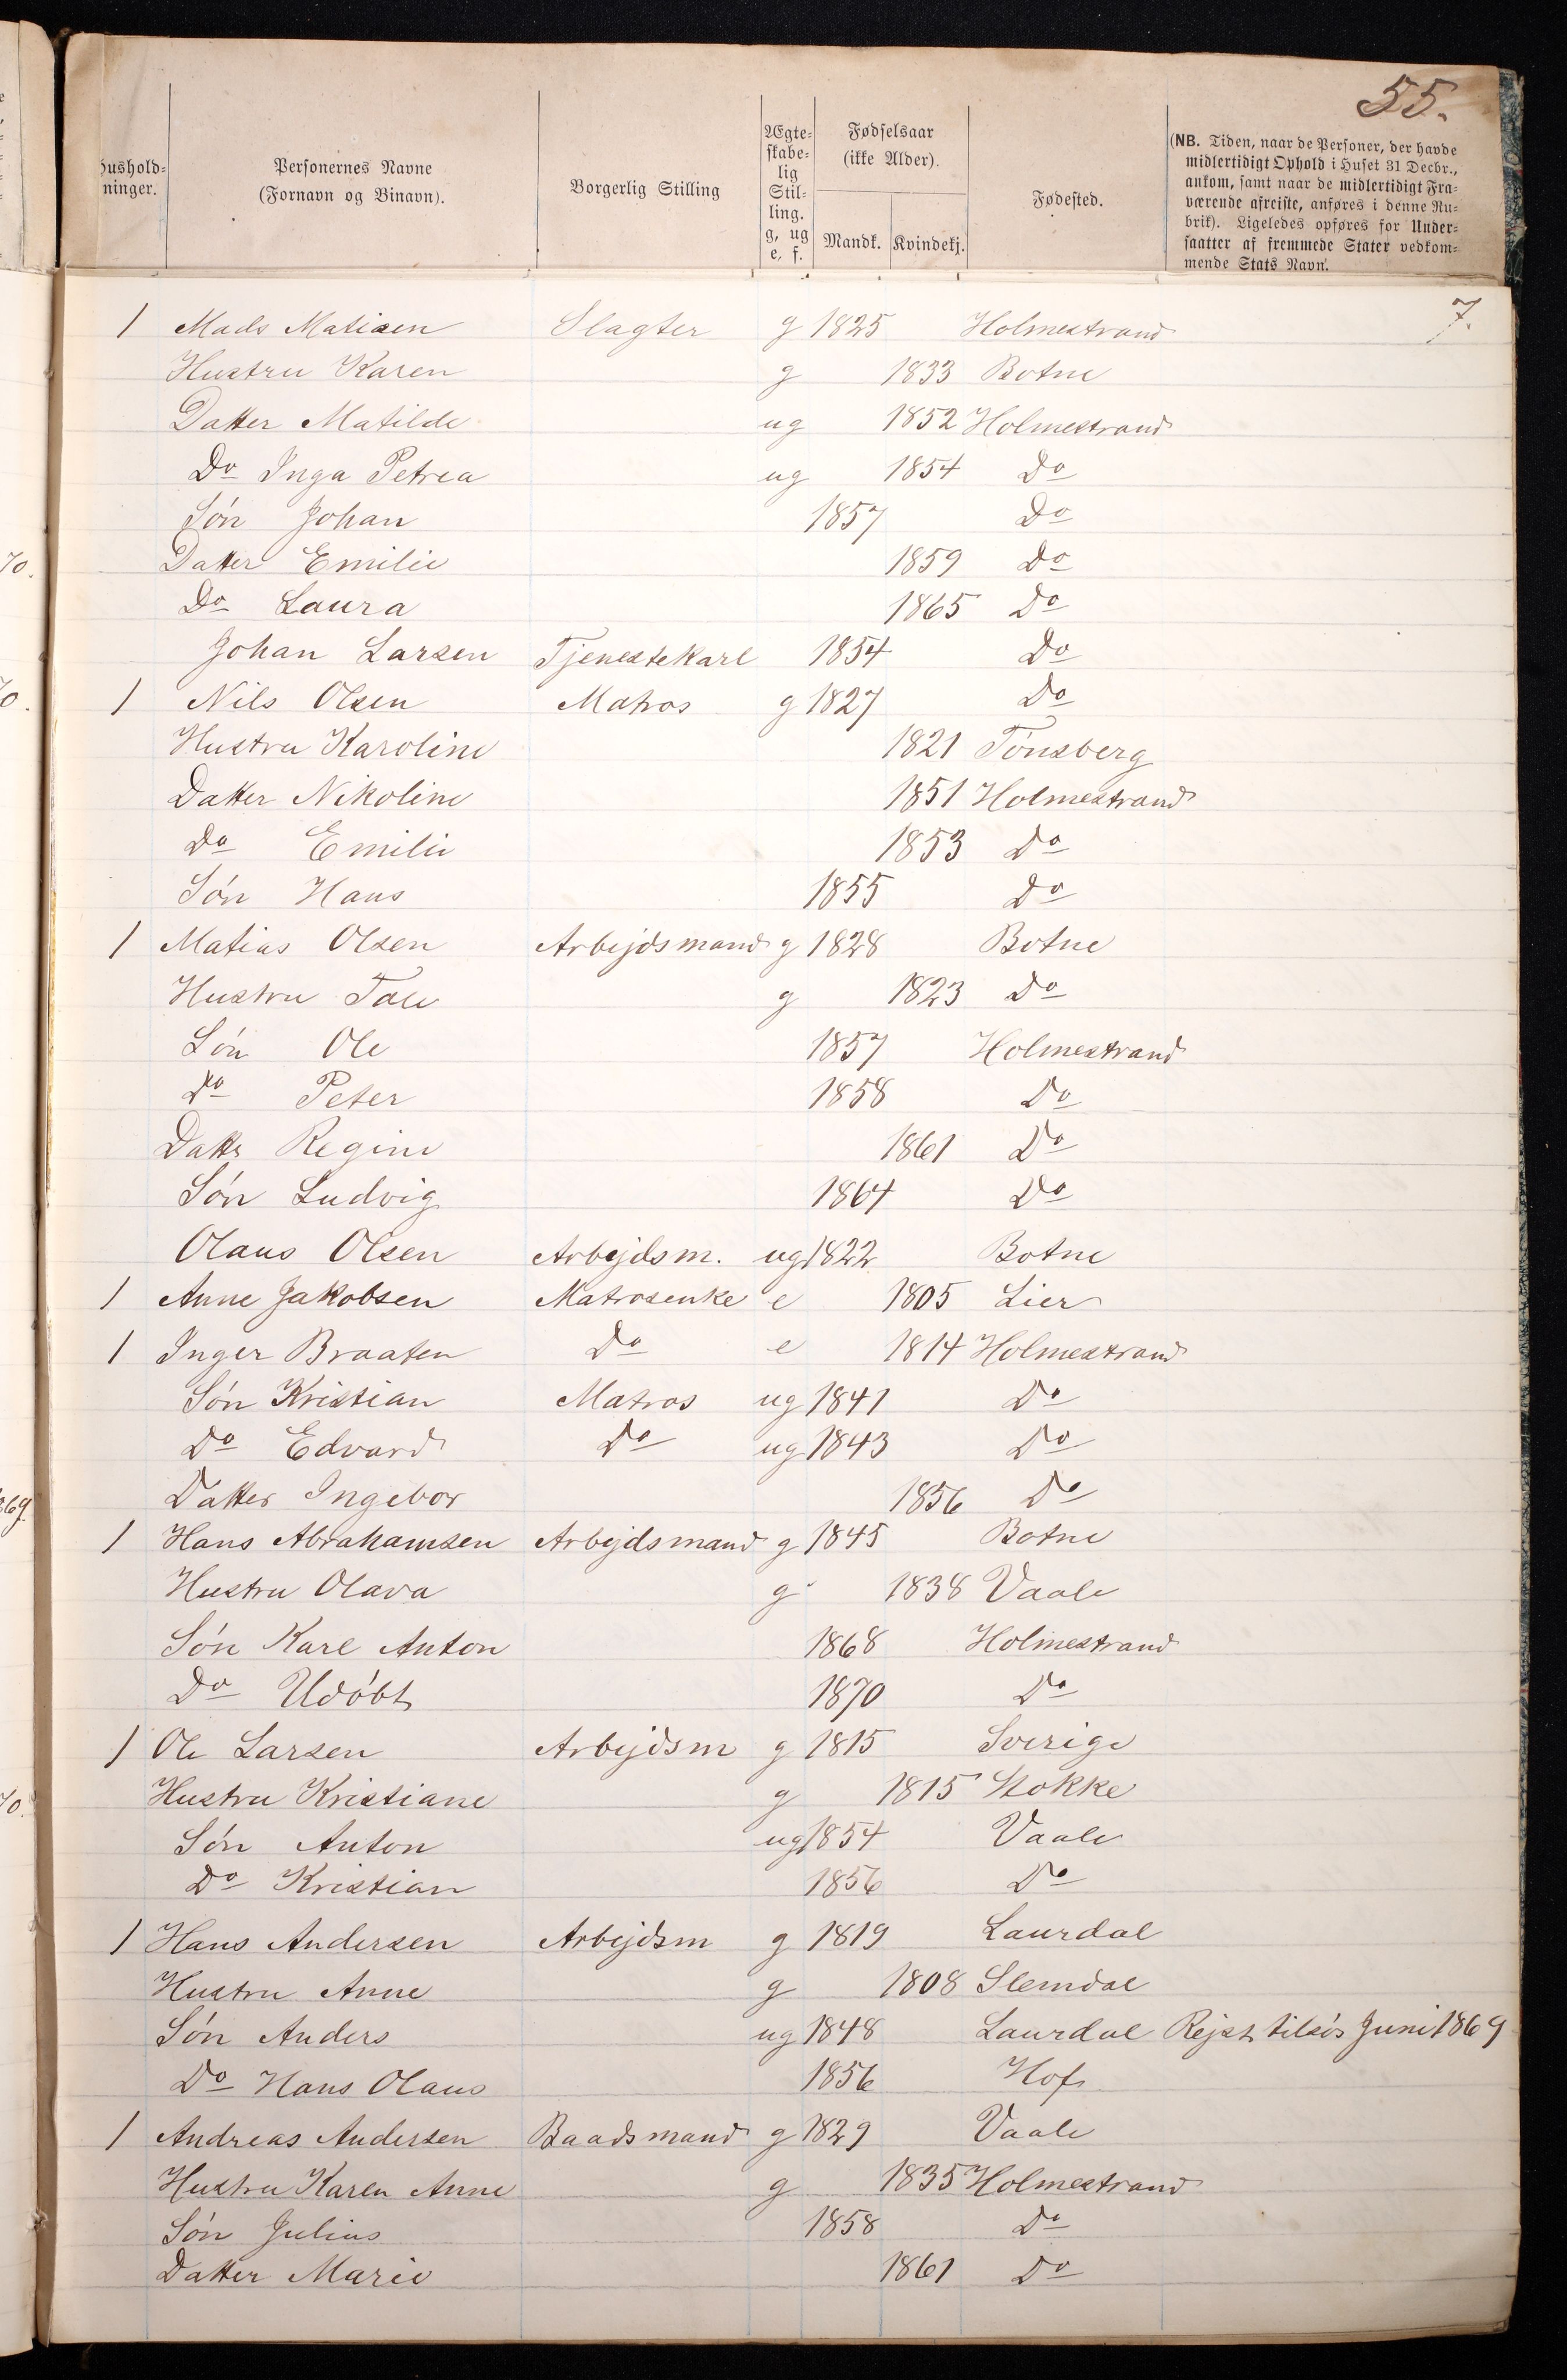 55.
Hushold-
ninger.
Personernes Navne
(Fornavn og Binavn).
Borgerlig Stilling
Ægte-
skabe-
lig
Stil-
ling.
g, ug
e, f.
Fødselsaar
(ikke Alder).
Mandk. Kvindekj.
Fødested.
(NB. Tiden, naar de Personer, der havde
midlertidigt Ophold i Huset 31 Decbr.,
ankom, samt naar de midlertidigt Fra-
værende afreiste, anføres i denne Ru-
brik). Ligeledes opføres for Under-
saatter af fremmede Stater vedkom-
mende Stats Navn.
1 Mads Matisen Slagter g 1825 Holmestrand 7.
Hustru Karen g 1833 Botne
Datter Matilde ug 1852 Holmestrand
Do Inga Petrea ug 1854 Do
Søn Johan 1857 Do
Datter Emilie 1859 Do
Do Laura 1865 Do
Johan Larsen Tjenestekarl 1854 Do
1 Nils Olsen Matros g 1827 Do
Hustru Karoline 1821 Tønsberg
Datter Nikoline 1851 Holmestrand
Do Emilie 1853 Do
Søn Hans 1855 Do
1 Matias Olsen Arbejdsmand g 1828 Botne
Hustru Tale g 1823 Do
Søn Ole 1857 Holmestrand
Do Peter 1858 Do
Datter Regine 1861 Do
Søn Ludvig 1864 Do
Olaus Olsen Arbejdsm. ug 1822 Botne
1 Anne Jakobsen Matrosenke e 1805 Lier
1 Inger Braaten Do e 1814 Holmestrand
Søn Kristian Matros ug 1841 Do
Do Edvard Do ug 1843 Do
Datter Ingebor 1856 Do
1 Hans Abrahamsen Arbejdsmand g 1845 Botne
Hustru Olava g 1838 Vaale
Søn Karl Anton 1868 Holmestrand
Do Udøbt 1870 Do
1 Ole Larsen Arbejdsm g 1815 Sverige
Hustru Kristiane g 1815 Stokke
Søn Anton ug 1854 Vaale
Do Kristian 1856 Do
1 Hans Andersen Arbejdsm g 1819 Laurdal
Hustru Anne g 1808 Slemdal
Søn Anders ug 1848 Laurdal Rejst tilsøs Juni 1869
Do Hans Olaus 1856 Hof
1 Andreas Andersen Baadsmand g 1829 Vaale
Hustru Karen Anne g 1835 Holmestrand
Søn Julius 1858 Do
Datter Marie 1861 Do